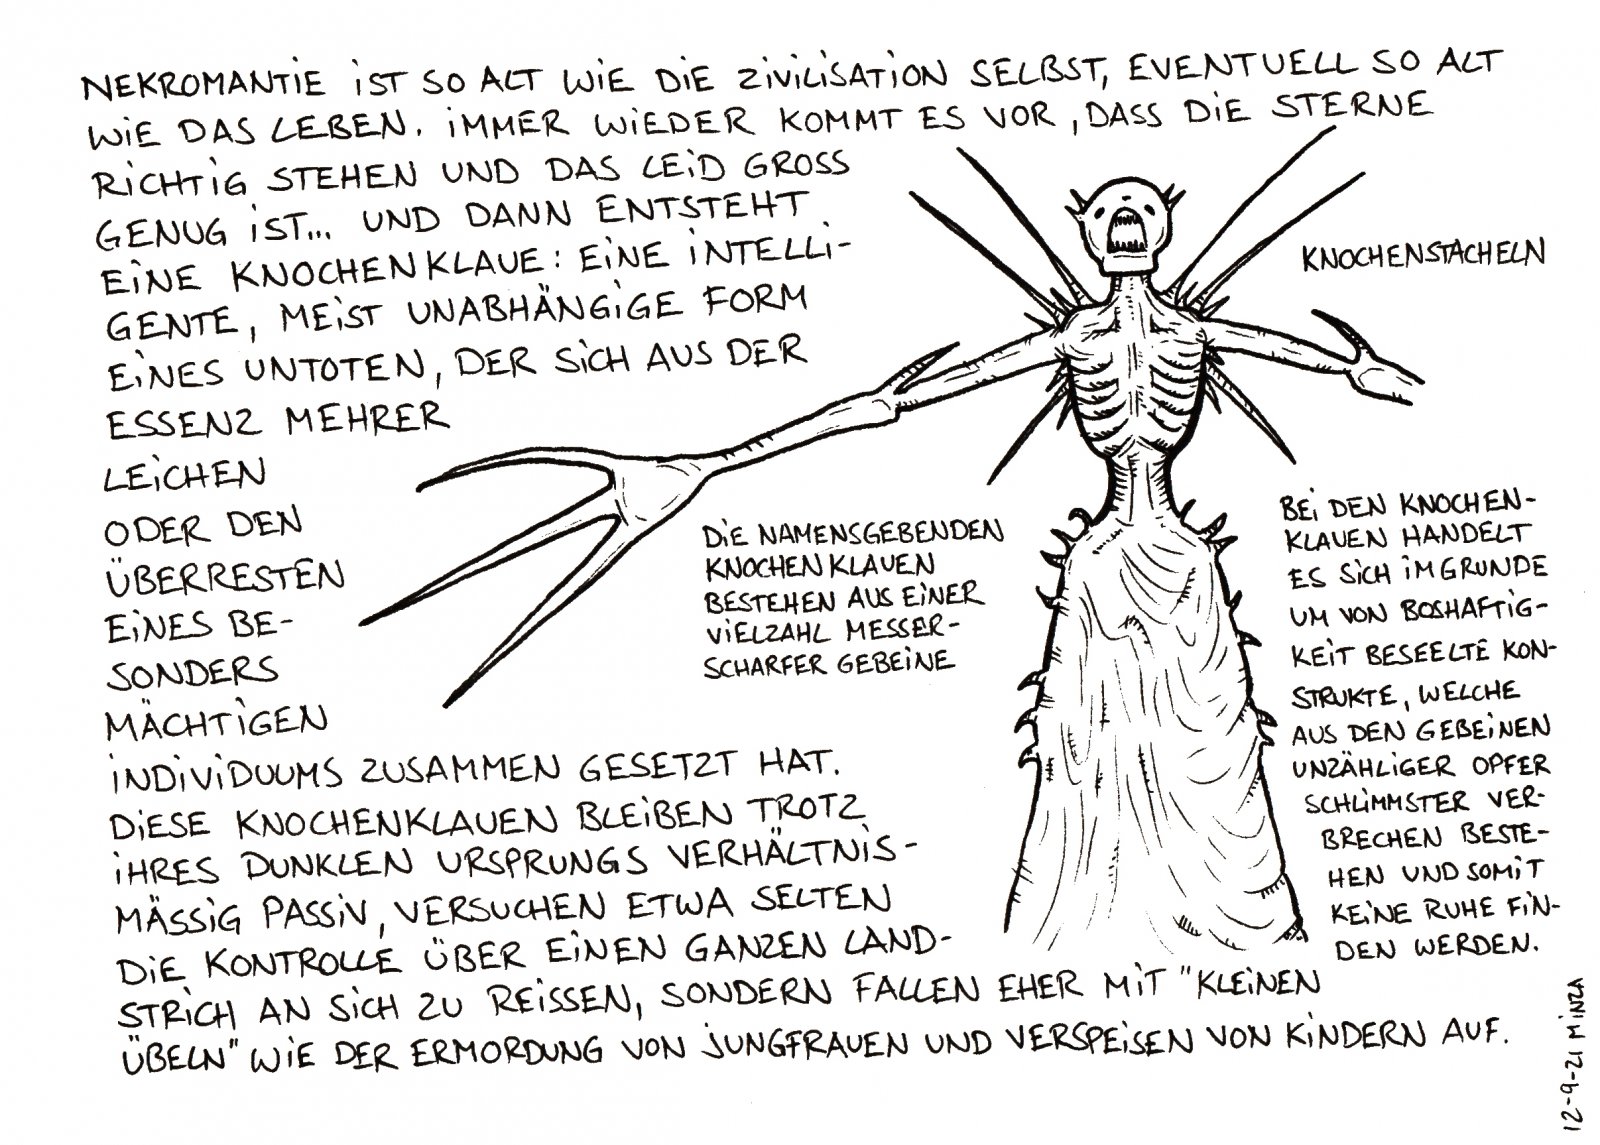 NEKROMANTIE IST SO ALT WIE DIE ZIVILISATION SELBST, EVENTUELL SO ALT
WIE DAS LEBEN. IMMER WIEDER KOMMT ES VOR, DASS DIE STERNE
RICHTIG STEHEN UND DAS LEID GROSS
GENUG IST... UND DANN ENTSTEHT
EINE KNOCHENKLAUE: EINE INTELLI-
GENTE, MEIST UNABHÄNGIGE FORM
EINES UNTOTEN, DER SICH AUS DER
ESSENZ MEHRER
LEICHEN
ODER DEN
ÜBERRESTEN
EINES BE-
SONDERS
MÄCHTIGEN
INDIVIDUUMS ZUSAMMEN GESETZT HAT.
DIESE KNOCHENKLAUEN BLEIBEN TROTZ
IHRES DUNKLEN URSPRUNGS VERHÄLTNIS-
MÄSSIG PASSIV, VERSUCHEN ETWA SELTEN
DIE KONTROLLE ÜBER EINEN GANZEN LAND-
STRICH AN SICH ZU REISSEN, SONDERN FALLEN EHER MIT "KLEINEN
ÜBELN" WIE DER ERMORDUNG VON JUNGFRAUEN UND VERSPEISEN VON KINDERN AUF.
KNOCHENSTACHELN
DIE NAMENSGEBENDEN
KNOCHENKLAUEN
BESTEHEN AUS EINER
VIELZAHL MESSER-
SCHARFER GEBEINE
BEI DEN KNOCHEN-
KLAUEN HANDELT
ES SICH IM GRUNDE
UM VON BOSHAFTIG-
KEIT BESEELTE KON-
STRUKTE, WELCHE
AUS DEN GEBEINEN
UNZÄHLIGER OPFER
SCHLIMMSTER VER-
BRECHEN BESTE-
HEN UND SOMIT
KEINE RUHE FIN-
DEN WERDEN.
12-9-21 MINZA